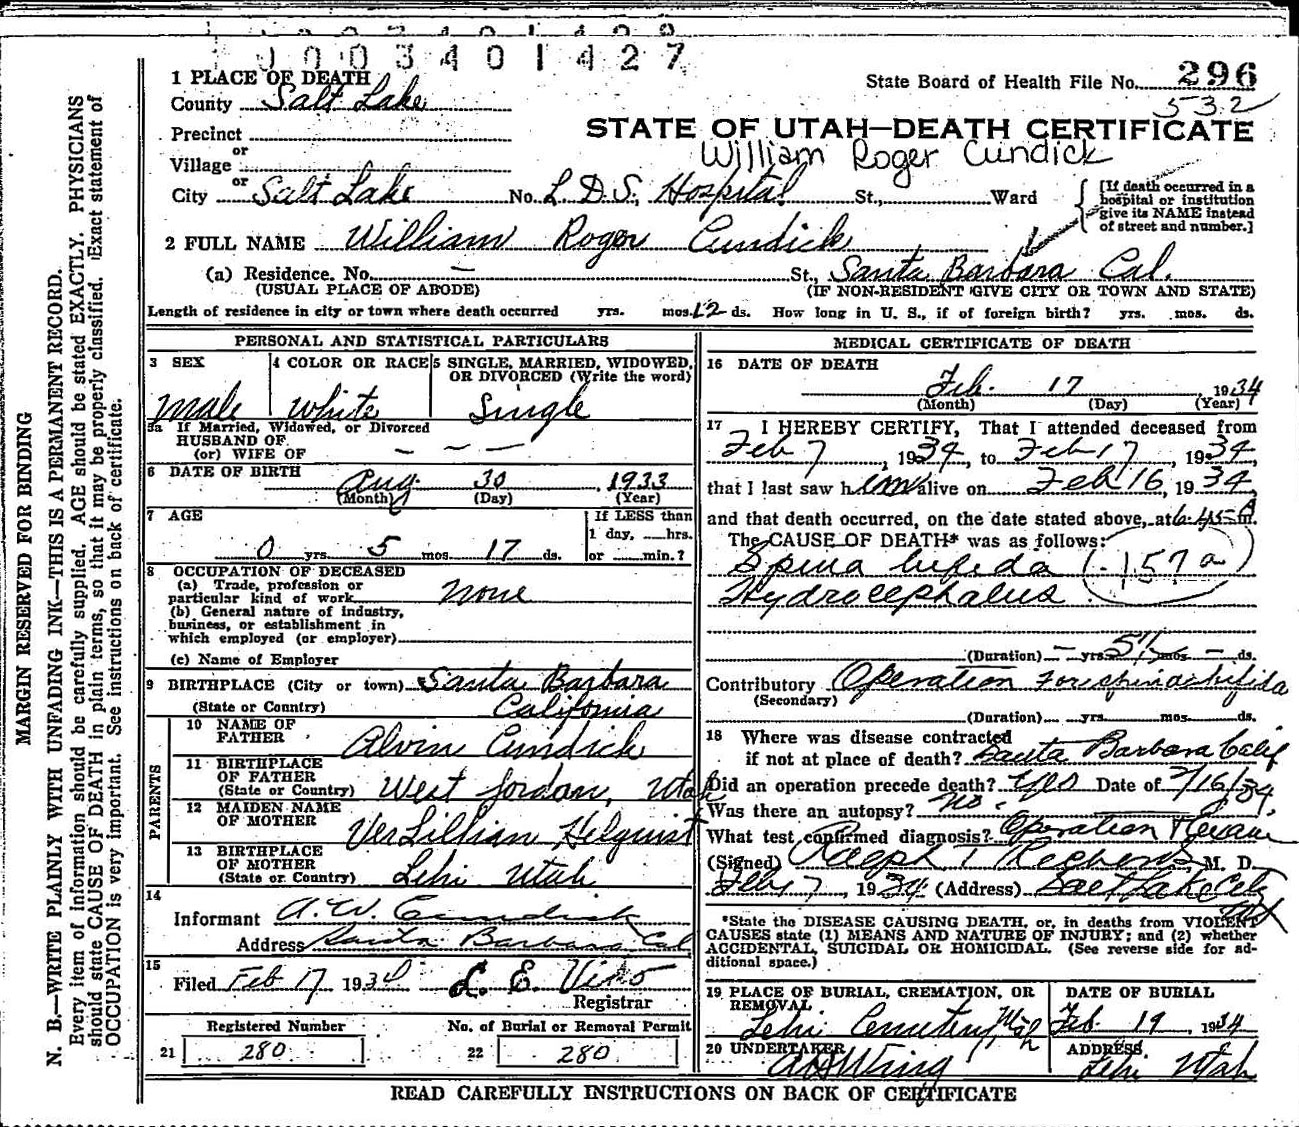 J 0 0 3 4 0 1 4 2 7
1 PLACE OF DEATH
State Board of Health File No. 296
County Salt Lake
532
Precinct
STATE OF UTAH—DEATH CERTIFICATE
or
William Roger Cundick
Village
or
City Salt Lake No. L.D.S. Hospital St., Ward
[If death occurred in a
hospital or institution
give its NAME instead
of street and number.]
2 FULL NAME William Roger Cundick
(a) Residence. No. — St., Santa Barbara Cal.
(USUAL PLACE OF ABODE) (IF NON-RESIDENT GIVE CITY OR TOWN AND STATE)
Length of residence in city or town where death occurred yrs. mos. 12 ds. How long in U. S., if of foreign birth? yrs. mos. ds.
PERSONAL AND STATISTICAL PARTICULARS
3 SEX
male
4 COLOR OR RACE
White
5 SINGLE, MARRIED, WIDOWED,
OR DIVORCED (Write the word)
Single
5a If Married, Widowed, or Divorced
HUSBAND OF
(or) WIFE OF — — —
6 DATE OF BIRTH
Aug. 30 1933
(Month) (Day) (Year)
7 AGE
If LESS than
1 day, hrs.
0 yrs. 5 mos. 17 ds. or min.?
8 OCCUPATION OF DECEASED
(a) Trade, profession or
particular kind of work none
(b) General nature of industry,
business, or establishment in
which employed (or employer)
(c) Name of Employer
9 BIRTHPLACE (City or town) Santa Barbara
(State or Country) California
PARENTS
10 NAME OF
FATHER Alvin Cundick
11 BIRTHPLACE
OF FATHER
(State or Country) West Jordan, Utah
12 MAIDEN NAME
OF MOTHER VerLillian Helquist
13 BIRTHPLACE
OF MOTHER
(State or Country) Lehi Utah
14
Informant A.W. Cundick
Address Santa Barbara Cal
15
Filed Feb 17 1934 L. E. Viko
Registrar
Registered Number No. of Burial or Removal Permit
21 280 22 280
MEDICAL CERTIFICATE OF DEATH
16 DATE OF DEATH
Feb. 17 1934
(Month) (Day) (Year)
17 I HEREBY CERTIFY, That I attended deceased from
Feb 7, 1934, to Feb 17, 1934,
that I last saw him alive on Feb 16, 1934,
and that death occurred, on the date stated above, at 6:45 A m.
The CAUSE OF DEATH* was as follows:
Spina bifida (157a)
Hydrocephalus
(Duration) — yrs. 5½ mos. — ds.
Contributory Operation for spina bifida
(Secondary)
(Duration) yrs. mos. ds.
18 Where was disease contracted
if not at place of death? Santa Barbara Calif
Did an operation precede death? Yes Date of 2/16/34
Was there an autopsy? No.
What test confirmed diagnosis? Operation
(Signed) Ralph T Richards, M. D.
1934 (Address) Salt Lake City
Utah
*State the DISEASE CAUSING DEATH, or, in deaths from VIOLENT
CAUSES state (1) MEANS AND NATURE OF INJURY; and (2) whether
ACCIDENTAL, SUICIDAL OR HOMICIDAL. (See reverse side for ad-
ditional space.)
19 PLACE OF BURIAL, CREMATION, OR
REMOVAL
Lehi Cemetery, Utah
DATE OF BURIAL
Feb. 19, 1934
20 UNDERTAKER
A H Wing
ADDRESS
Lehi Utah
READ CAREFULLY INSTRUCTIONS ON BACK OF CERTIFICATE
MARGIN RESERVED FOR BINDING
N. B.—WRITE PLAINLY WITH UNFADING INK—THIS IS A PERMANENT RECORD.
Every item of information should be carefully supplied. AGE should be stated EXACTLY. PHYSICIANS
should state CAUSE OF DEATH in plain terms, so that it may be properly classified. Exact statement of
OCCUPATION is very important. See instructions on back of certificate.